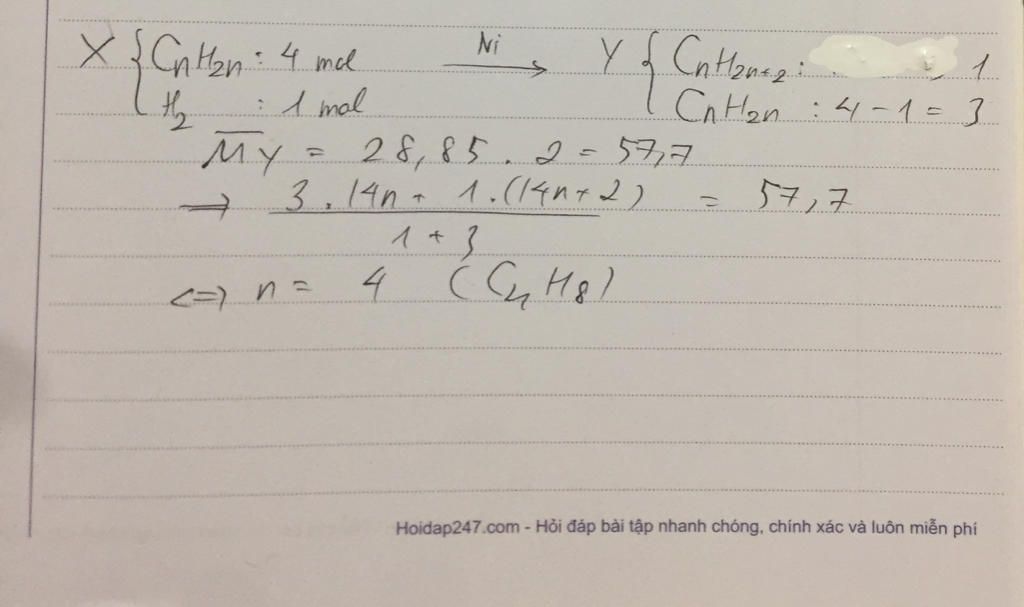 X { CnH2n : 4 mol Ni → Y { CnH2n+2 : 1
H2 : 1 mol CnH2n : 4 - 1 = 3
M̅Y = 28,85 . 2 = 57,7
⇒ 3 . 14n + 1 . (14n + 2) = 57,7
1 + 3
⇔ n = 4 (C4H8)
Hoidap247.com - Hỏi đáp bài tập nhanh chóng, chính xác và luôn miễn phí